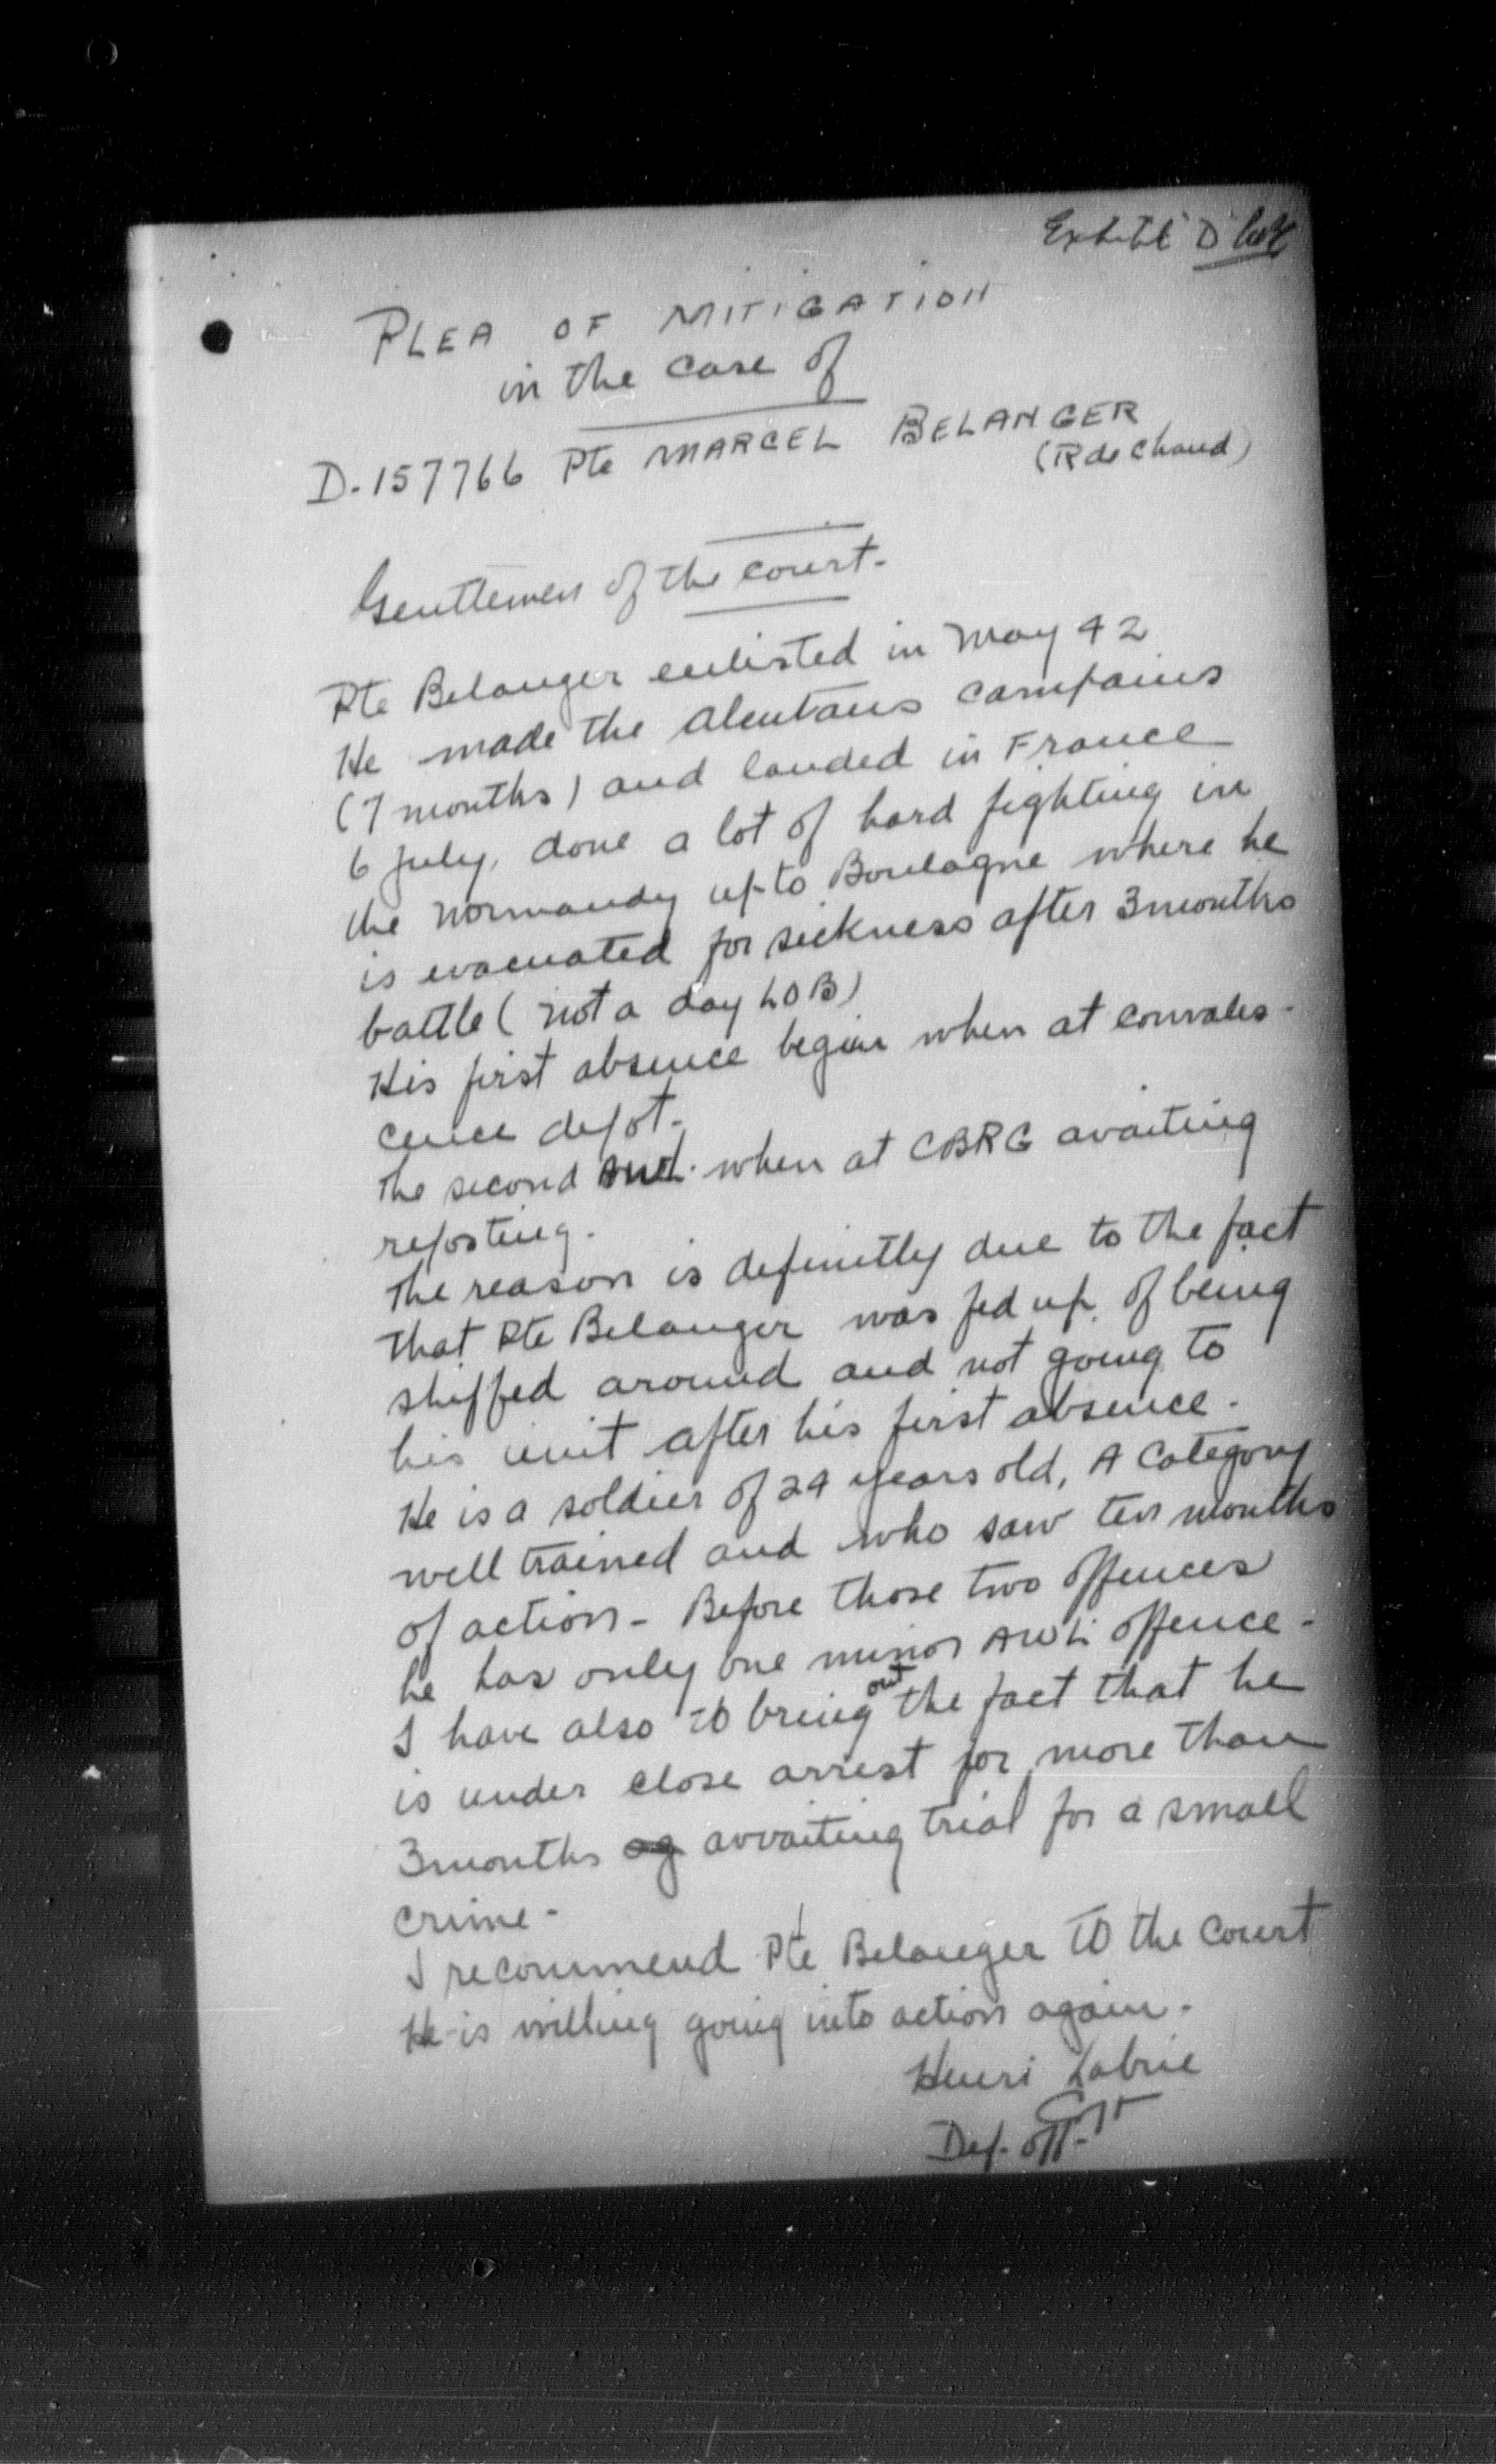 Exhibit "D"
PLEA OF MITIGATION
in the case of
D-157766 Pte MARCEL BELANGER
(R de Chaud)
Gentlemen of the court-
Pte Belanger enlisted in May 42
He made the Aleutans campains
(7 months) and landed in France
6 july, done a lot of hard fighting in
the Normandy up to Boulogne where he
is evacuated for sickness after 3 months
battle (not a day LOB)
His first absence began when at convales-
cence depot-
The second AWL. when at CBRG avaiting
reposting.
The reason is definitly due to the fact
that Pte Belanger was fed up of being
shipped around and not going to
his unit after his first absence.
He is a soldier of 24 years old, A Category
well trained and who saw ten months
of action - Before those two offences
he has only one minor AWL offence-
I have also to bring out the fact that he
is under close arrest for more than
3 months avvaiting trial for a small
crime-
I recommend Pte Belanger to the court
He is willing going into action again.
Henri Labrie
Def. Off.